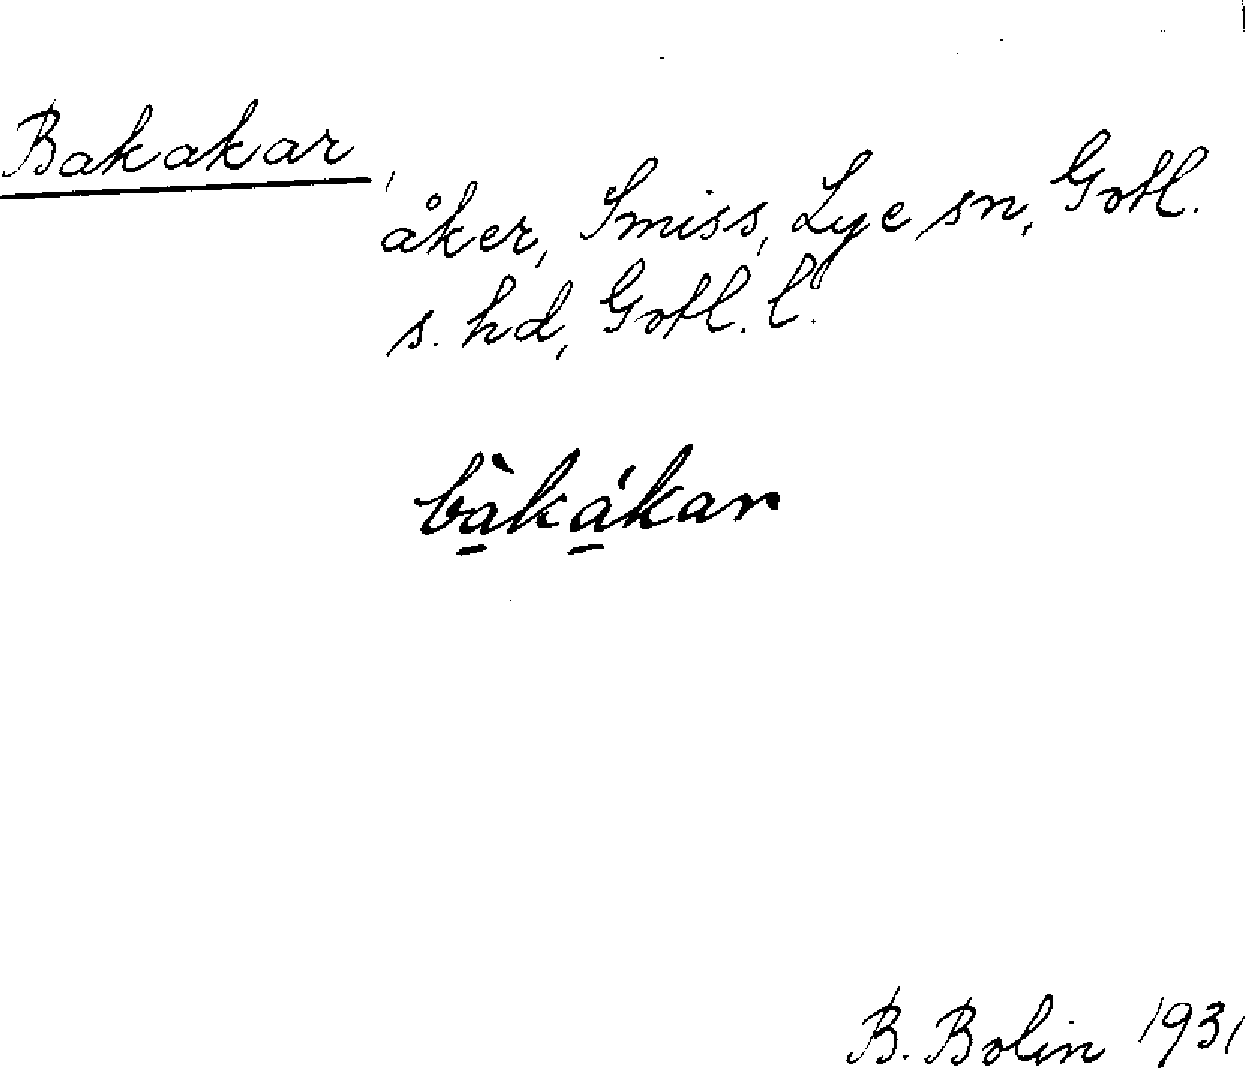 Bakakar,
åker, Smiss, Lye sn, Gotl.
s. hd, Gotl. l.
bà̱ká̱kar
B. Bolin 1931